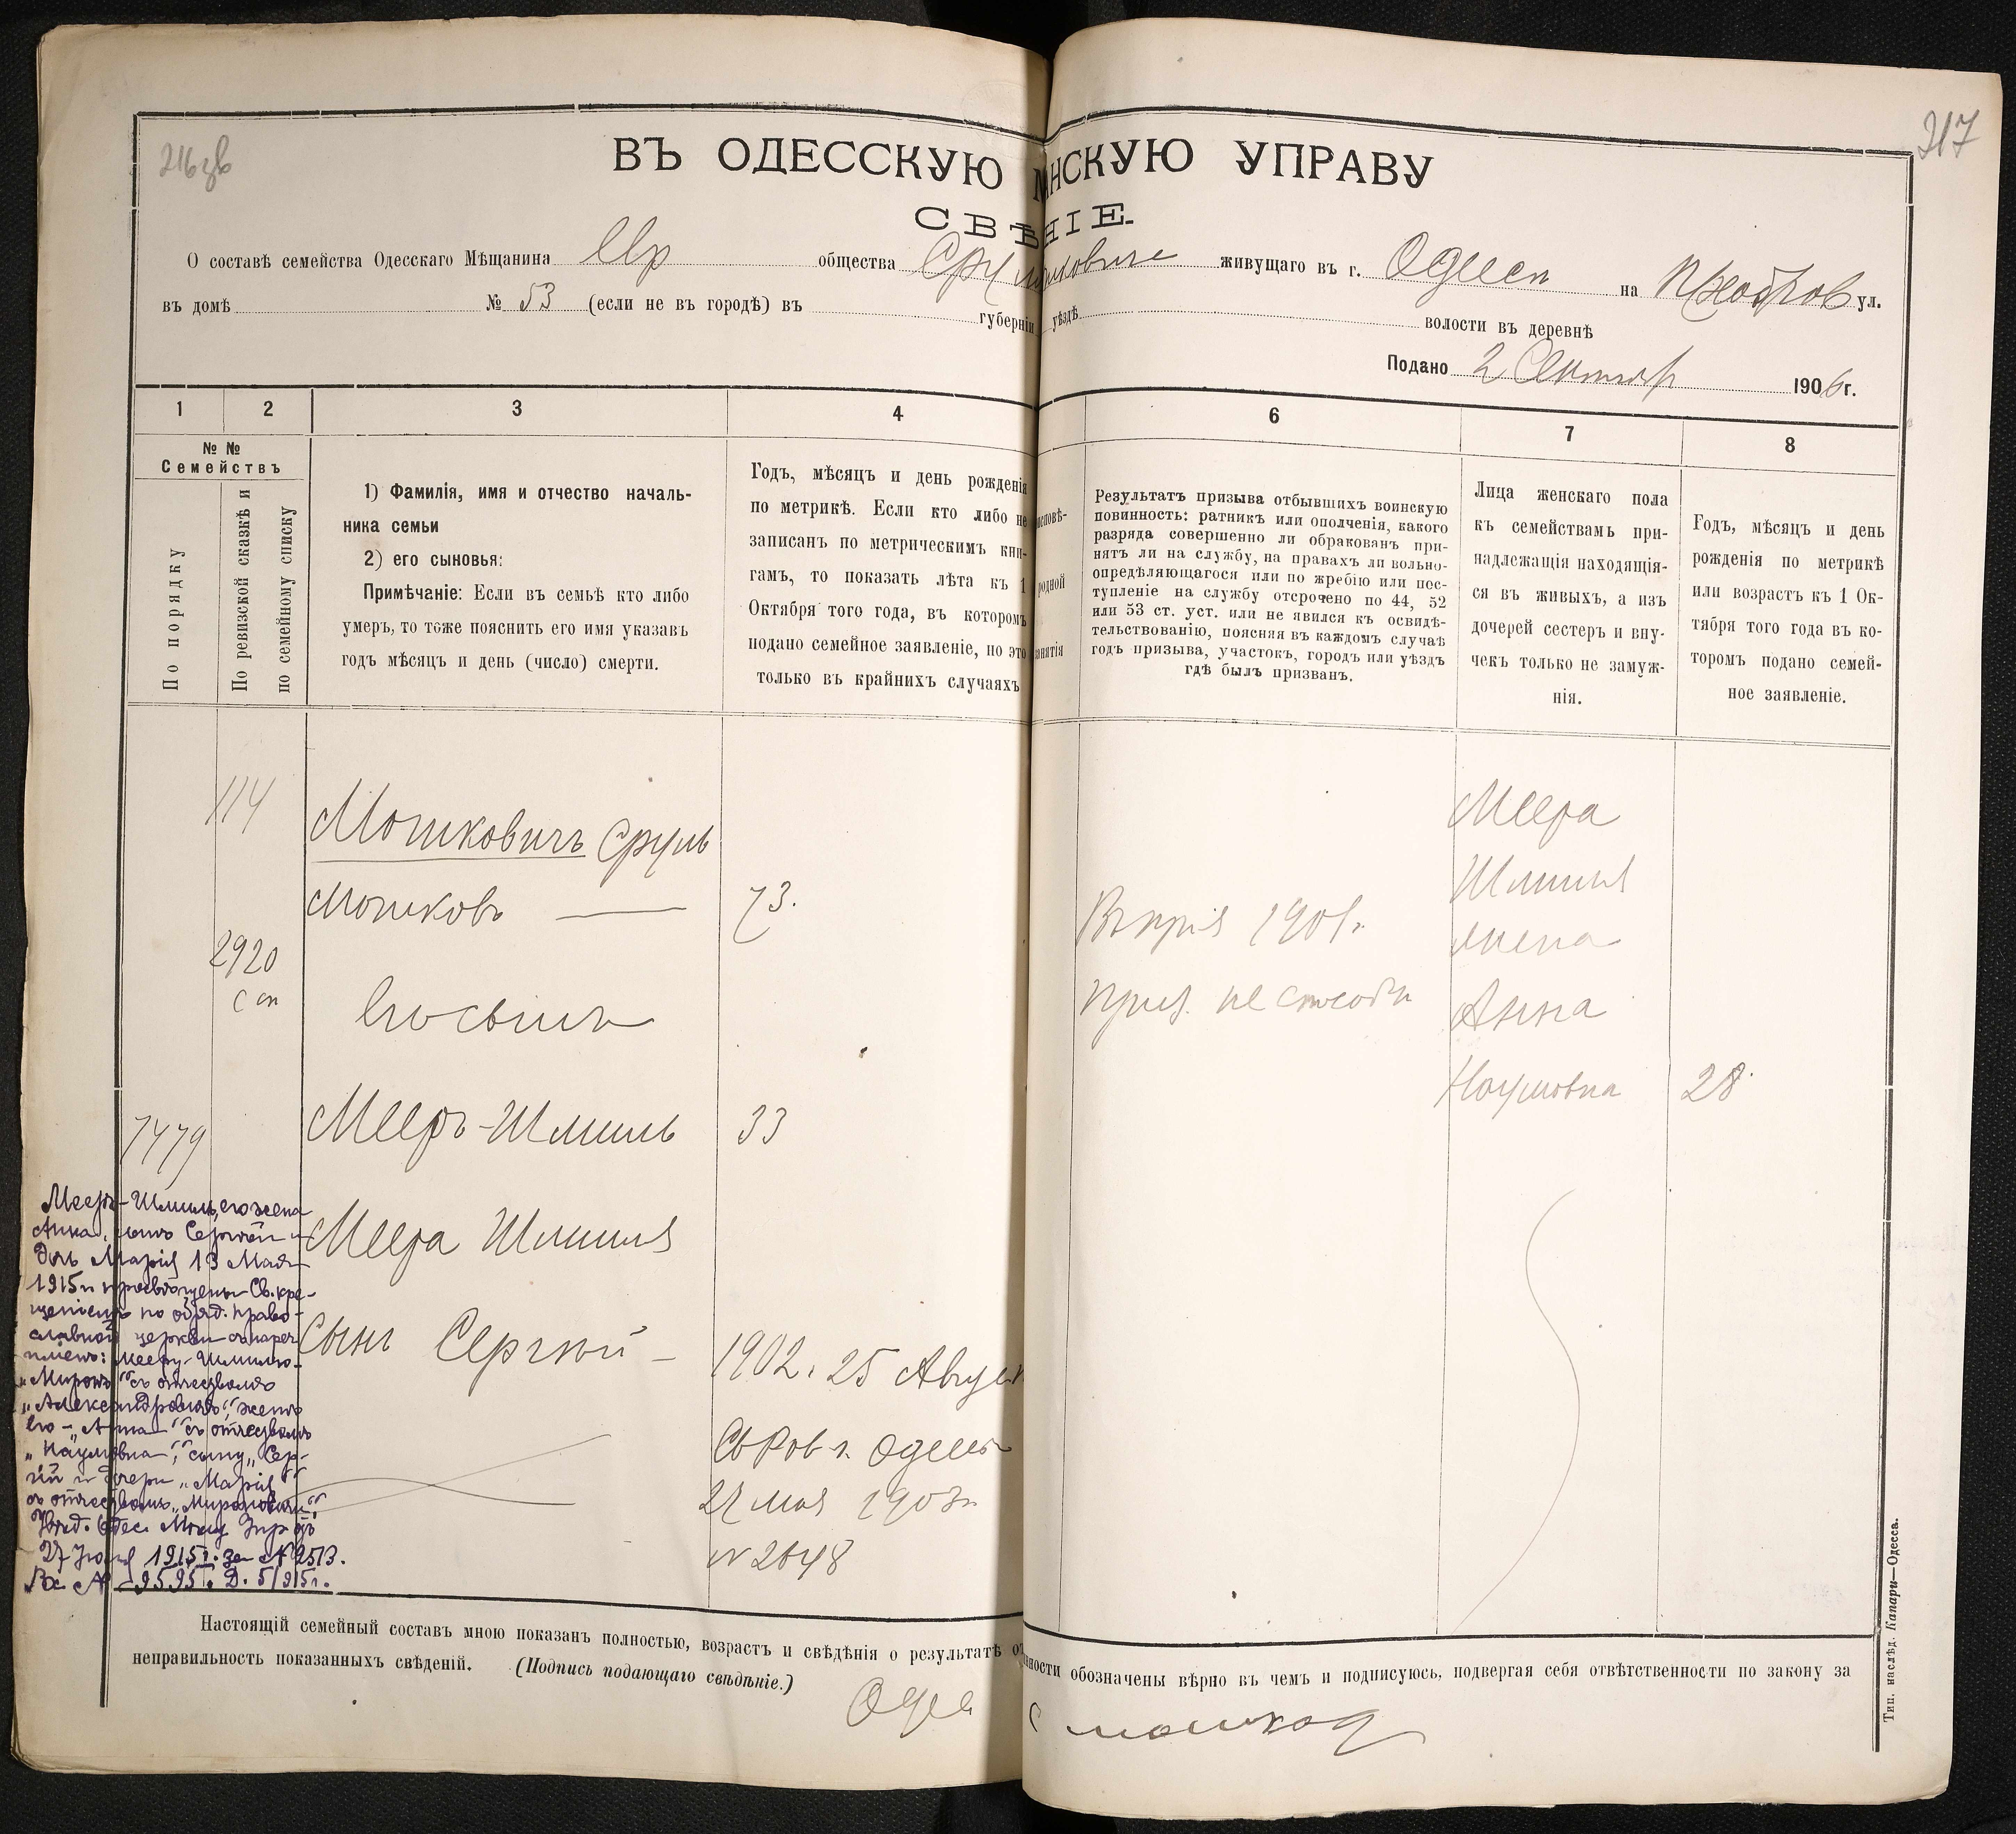 216 зв
217
ВЪ ОДЕССКУЮ НСКУЮ УПРАВУ
СВѢ НІЕ.
О составѣ семейства Одесскаго Мѣщанина Евр общества живущаго въ г. Одессы на ул.
въ домѣ № 53 (если не въ городѣ) въ губерніи уѣздѣ волости въ деревнѣ
Подано 2 1906 г.
1 2 3 4 6 7 8
№ №
Семействъ
По порядку
По ревизской сказкѣ и
по семейному списку
1) Фамилія, имя и отчество началь-
ника семьи
2) его сыновья:
Примѣчаніе: Если въ семьѣ кто либо
умеръ, то тоже пояснить его имя указавъ
годъ мѣсяцъ и день (число) смерти.
Годъ, мѣсяцъ и день рожденія
по метрикѣ. Если кто либо не
записанъ по метрическимъ кни-
гамъ, то показать лѣта къ 1
Октября того года, въ которомъ
подано семейное заявленіе, но это
только въ крайнихъ случаяхъ
исповѣ-
родной
занятія
Результатъ призыва отбывшихъ воинскую
повинность: ратникъ или ополченія, какого
разряда совершенно ли обракованъ при-
нятъ ли на службу, на правахъ ли вольно-
опредѣляющагося или по жребію или пос-
тупленіе на службу отсрочено по 44, 52
или 53 ст. уст. или не явился къ освидѣ-
тельствованію, поясняя въ каждомъ случаѣ
годъ призыва, участокъ, городъ или уѣздъ
гдѣ былъ призванъ.
Лица женскаго пола
къ семействамъ при-
надлежащія находящія-
ся въ живыхъ, а изъ
дочерей сестеръ и вну-
чекъ только не замуж-
нія.
Годъ, мѣсяцъ и день
рожденія по метрикѣ
или возрастъ къ 1 Ок-
тября того года въ ко-
торомъ подано семей-
ное заявленіе.
114
Мошковичъ Сруль
Мошковъ 73.
2920
сп
Его сынъ
7479
Мееръ-Шмиль 33
Меера Шмиля
Сынъ Сергѣй
1902 г. 25 Август
Св Ров г. Одессы
27 мая 1903 г.
№ 2648
Въ приз 1901 г.
приз. не способн
Меера
Шмиля
жена
Анна
Наумовна 28
Мееръ-Шмиль, его жена
Анна, сынъ Сергѣй и
дочь Марія 13 Мая
1915 г. просвѣщены Св. кре-
щеніемъ по обряд. право-
славной церкви съ нареч
ніемъ: Мееру-Шмилю-
„Миронъ" съ отчествомъ
„Александровичъ", женѣ
его - „Анна" съ отчествомъ
„Наумовна", сыну „Сер-
гій и дочери „Марія"
съ отчествомъ „Мироновичи"
Увѣд. Одес. Мѣщ. Упр. отъ
27 Іюня 1915 г. за № 2513.
Вх. № 9595. Д. 5/915 г.
Настоящій семейный составъ мною показанъ полностью, возрастъ и свѣдѣнія о результатѣ от нности обозначены вѣрно въ чемъ и подписуюсь, подвергая себя отвѣтственности по закону за
неправильность показанныхъ свѣдѣній. (Подпись подающаго свѣдѣніе.)
Тип. наслѣд. Капари—Одесса.